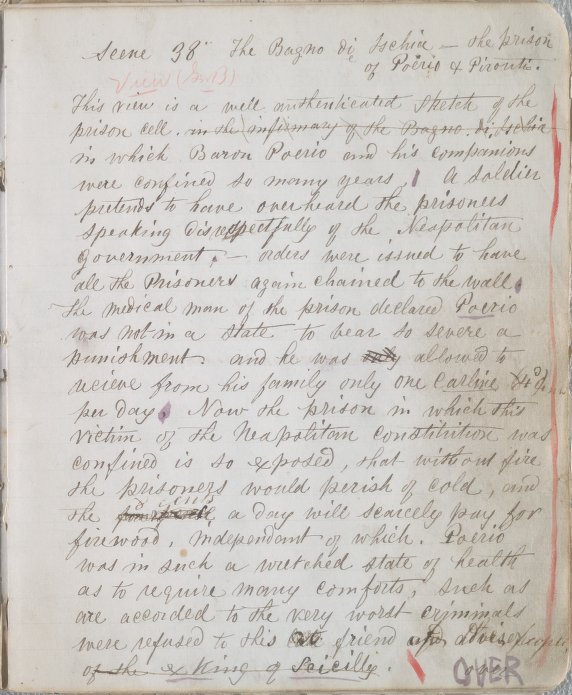 Scene 38" The Bagno di Ischia - the prison
of Poerio & Pironti.
View (No 13)
This view is a well authenticated sketch of the
prison cell. in the infirmary of the Bagno di Ischia
in which Baron Poerio and his companions
were confined so many years. A soldier
pretends to have overheard the prisoners
speaking disrespectfully of the Neapolitan
government. - orders were issued to have
all the Prisoners again chained to the wall.
The medical man of the prison declared Poerio
was not in a state to bear so severe a
punishment. and he was allowed to
recieve from his family only one Carline
per day. Now the prison in which this
victim of the Neapolitan constitution was
confined is so exposed, that without fire
the prisoners would perish of cold, and
the a day will scarcely pay for
firewood, independant of which. Poerio
was in such a wretched state of health
as to require many comforts, such as
are accorded to the very worst criminals
were refused to this friend
of the ex King of Scicilly.
OVER